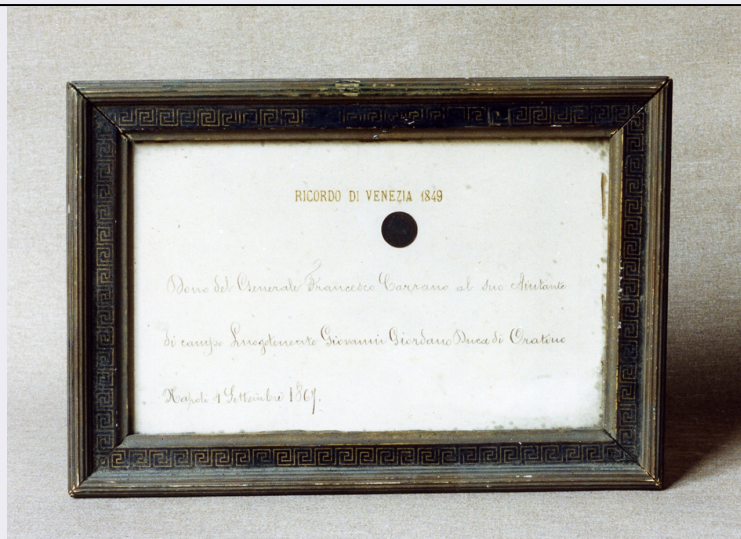 RICORDO DI VENEZIA 1849
Dono del Generale Francesco Carrano al suo Aiutante
di campo Luogotenente Giovanni Giordano Duca di Oratino
Napoli 1 Settembre 1867.